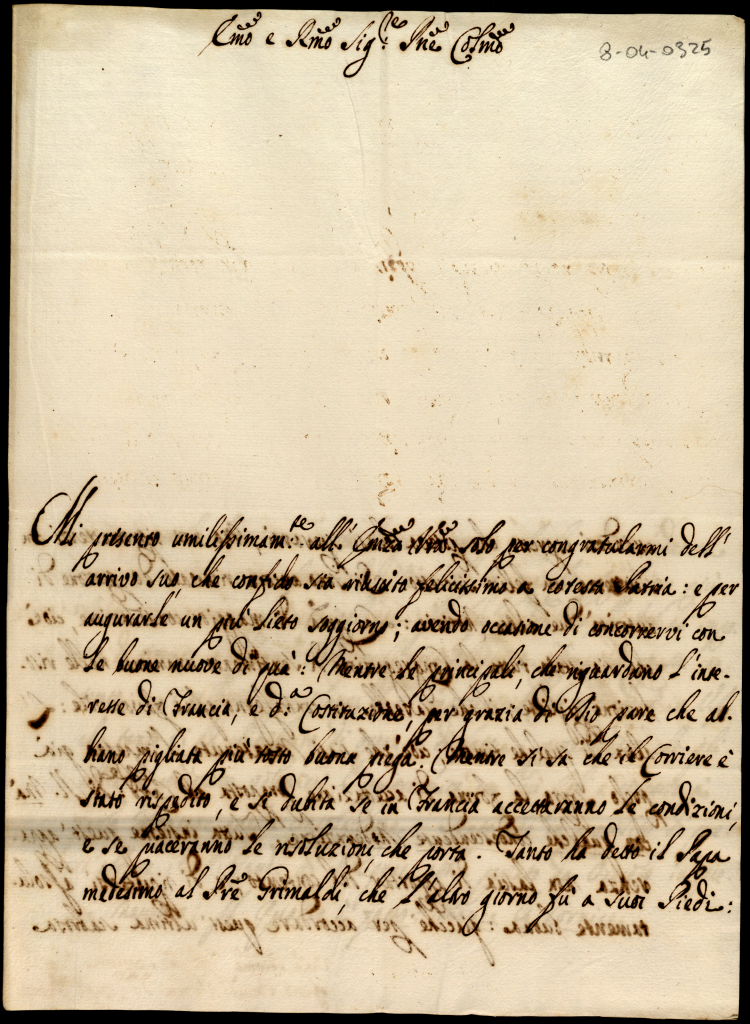 Emo e Rmo Sig.re Pne Colmo
8-04-0325
Mi presento umilissimam.te all' Emza Vra solo per congratularmi dell'
arrivo suo, che confido sia riuscito felicissimo a coresta Patria: e per
augurarle un più lieto soggiorno; avendo occasione di concorrervi con
le buone nuove di quà: Mentre le principali, che riguardano l'inte-
resse di Francia, e d.a Costituzione, per grazia di Dio pare che ab-
biano pigliata più tosto buona piega: Mentre si sà che il Corriere è
stato rispedito, e si dubita se in Francia accettaranno le condizioni,
e se piaceranno le risoluzioni, che porta. Tanto ha detto il Papa
medesimo al Pre Grimaldi, che l'altro giorno fù a suoi Piedi: